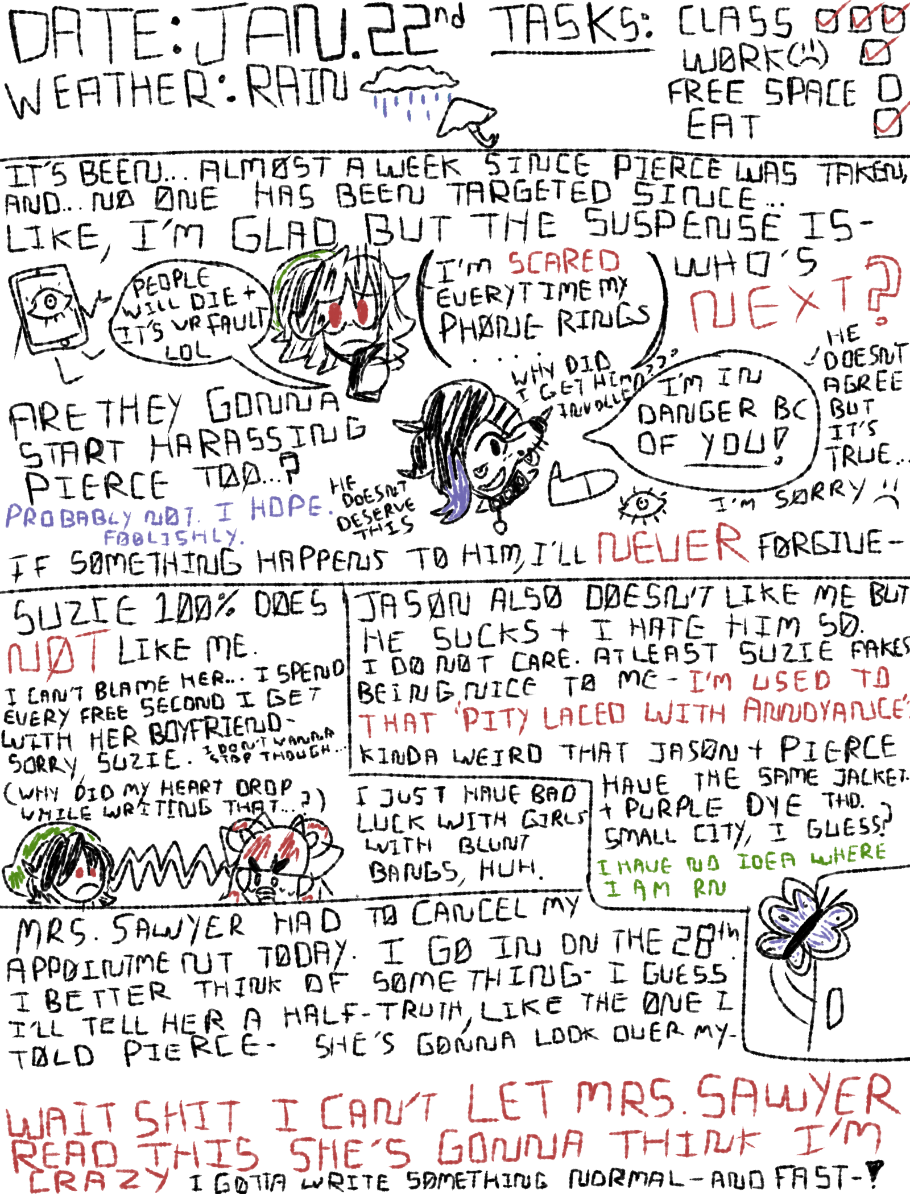 DATE: JAN. 22nd
WEATHER: RAIN
TASKS:
CLASS
WORK(:()
FREE SPACE
EAT
IT'S BEEN... ALMOST A WEEK SINCE PIERCE WAS TAKEN,
AND... NO ONE HAS BEEN TARGETED SINCE...
LIKE, I'M GLAD BUT THE SUSPENSE IS-
PEOPLE
WILL DIE +
IT'S UR FAULT
LOL
I'M SCARED
EVERYTIME MY
PHONE RINGS
.....
WHO'S
NEXT?
ARE THEY GONNA
START HARASSING
PIERCE TOO...?
PROBABLY NOT. I HOPE.
FOOLISHLY.
HE
DOESN'T
DESERVE
THIS
WHY DID
I GET HIM
INVOLVED???
I'M IN
DANGER BC
OF YOU!
HE
DOESN'T
AGREE
BUT
IT'S
TRUE...
I'M SORRY :(
IF SOMETHING HAPPENS TO HIM, I'LL NEVER FORGIVE-
SUZIE 100% DOES
NOT LIKE ME.
I CAN'T BLAME HER... I SPEND
EVERY FREE SECOND I GET
WITH HER BOYFRIEND-
SORRY, SUZIE. I DON'T WANNA
STOP THOUGH...
(WHY DID MY HEART DROP
WHILE WRITING THAT...?)
JASON ALSO DOESN'T LIKE ME BUT
HE SUCKS + I HATE HIM SO.
I DO NOT CARE. ATLEAST SUZIE FAKES
BEING NICE TO ME - I'M USED TO
THAT 'PITY LACED WITH ANNOYANCE'
KINDA WEIRD THAT JASON + PIERCE
HAVE THE SAME JACKET
+ PURPLE DYE THO.
SMALL CITY, I GUESS?
I HAVE NO IDEA WHERE
I AM RN
I JUST HAVE BAD
LUCK WITH GIRLS
WITH BLUNT
BANGS, HUH.
MRS. SAWYER HAD TO CANCEL MY
APPOINTMENT TODAY. I GO IN ON THE 28th.
I BETTER THINK OF SOMETHING- I GUESS
I'LL TELL HER A HALF-TRUTH, LIKE THE ONE I
TOLD PIERCE- SHE'S GONNA LOOK OVER MY-
WAIT SHIT I CAN'T LET MRS. SAWYER
READ THIS SHE'S GONNA THINK I'M
CRAZY I GOTTA WRITE SOMETHING NORMAL-AND FAST-!